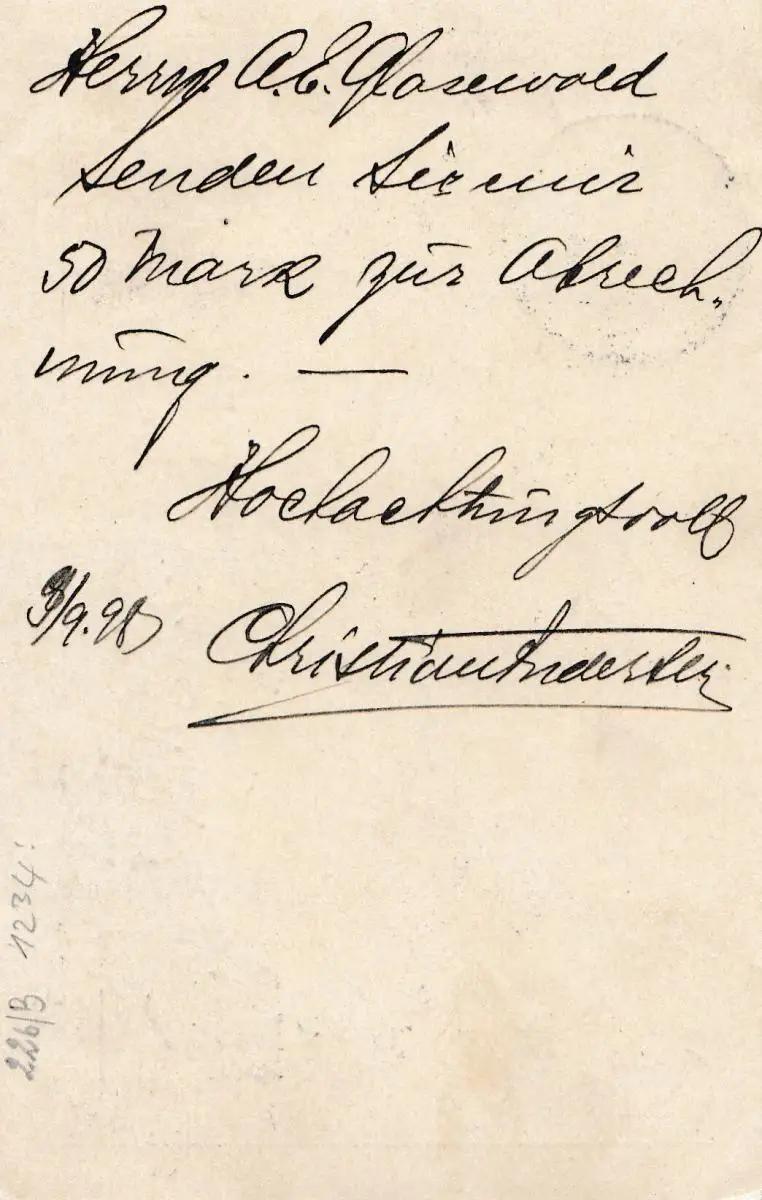 Herrn A. E. Glasewald
senden Sie mir
50 Mark zur Abrech-
nung. —
Hochachtungsvoll
9/9. 98 Christian Andersen
226/B 1234: